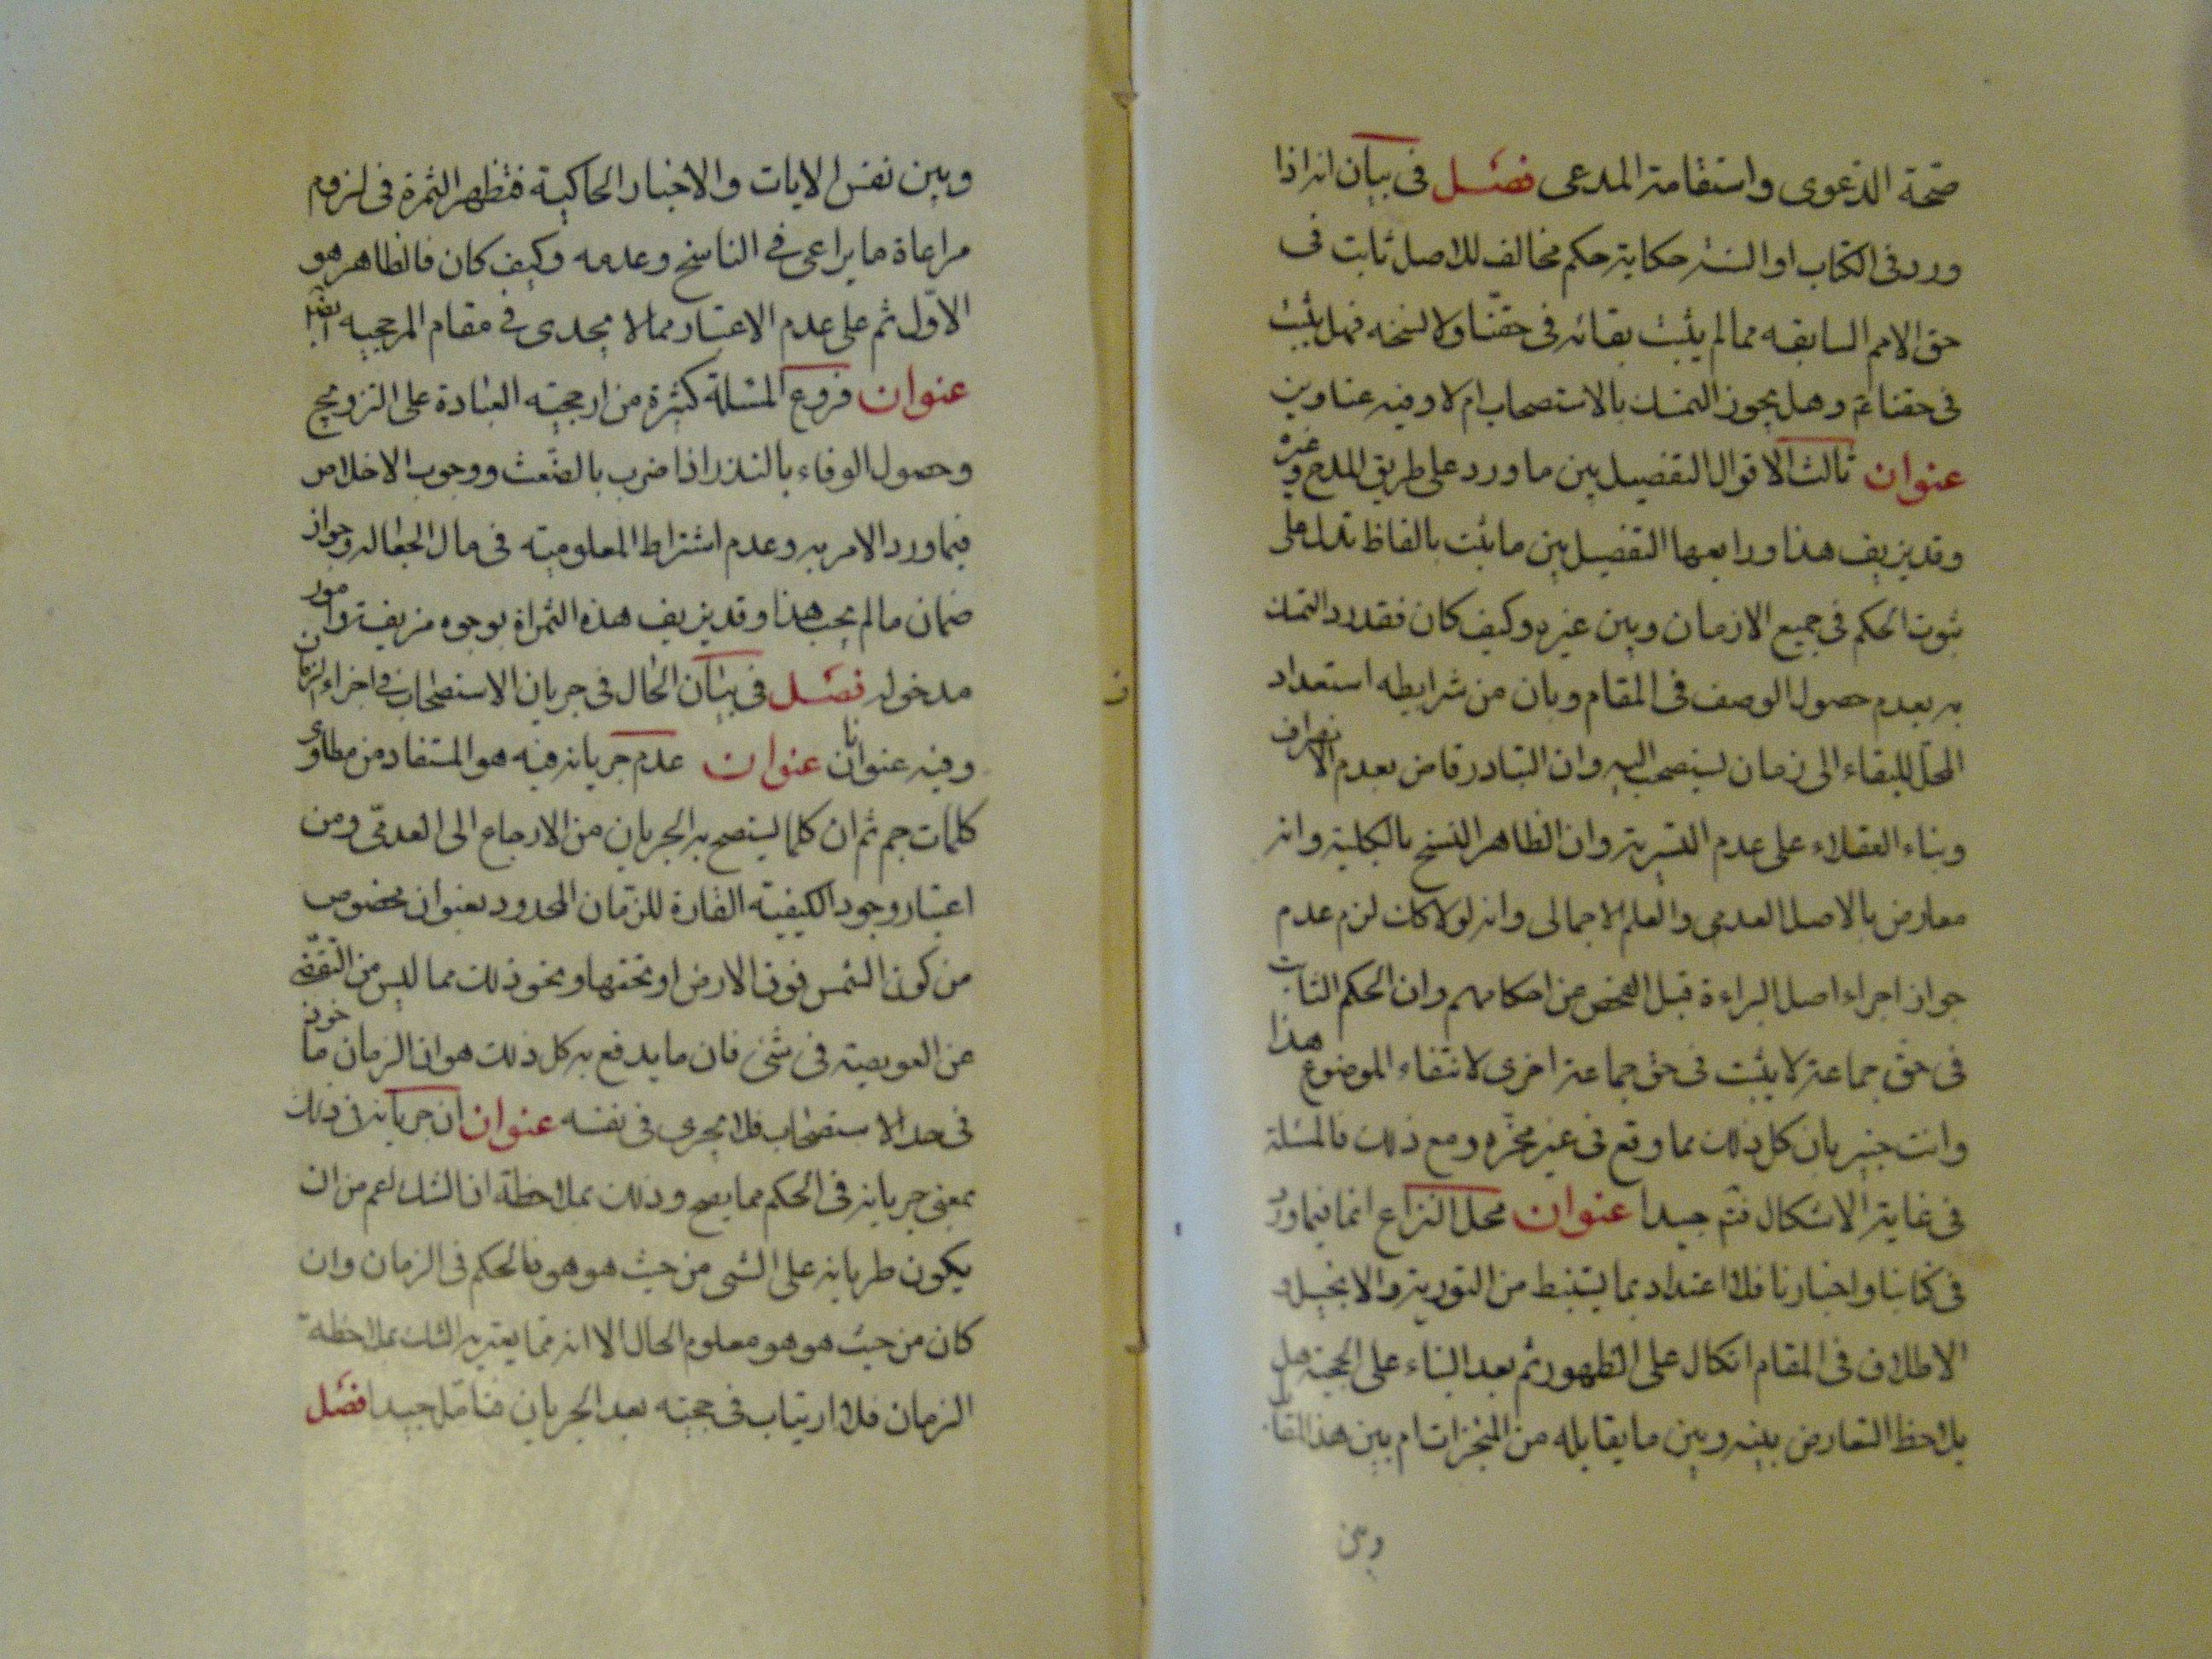 صحة الدعوى واستقامة المدعى فصل فى بيان انه اذا
ورد فى الكتاب او السنة حكاية حكم مخالف للاصل ثابت فى
حق الامم السابقه مما لم يثبت بقائه فى حقنا ولا نسخه فهل يثبت
فى حقنا ثم وهل يجوز التمسك بالاستصحاب ام لا وفيه عناوين
عنوان ثالث الاقوال التفصيل بين ما ورد على طريق المدح وغيره
وقد يزيف هذا ورابعها التفصيل بين ما يثبت بالفاظ تدل على
ثبوت الحكم فى جميع الازمان وبين غيره وكيف كان فقد رد التمسك
به بعدم حصول الوصف فى المقام وبان من شرايطه استعداد
المحل للبقاء الى زمان يستصحب اليه وان التبادر قاض بعدم الانصراف
وبناء العقلاء على عدم التسرية وان الظاهر النسخ بالكلية وانه
معارض بالاصل العدمى والعلم الاجمالى وانه لولا كان لزم عدم
جواز اجراء اصل البراءة قبل الفحص عن احكامهم وان الحكم الثابت
فى حق جماعة لا يثبت فى حق جماعة اخرى لانتفاء الموضوع هذا
وانت خبير بان كل ذلك مما وقع فى غير محزه ومع ذلك فالمسئلة
فى غاية الاشكال فتم جيدا عنوان محل النزاع انما فيما ورد
فى كتابنا واخبارنا فلا اعتداد بما يستنبط من التورية والانجيل و
الاطلاق فى المقام اتكال على الظهور ثم بعد البناء على الحجية هل
يلاحظ التعارض بينه وبين ما يقابله من المنجزات ام بين هذا المقابل
وبين
وبين نفس الايات والاخبار الحاكية فتظهر الثمرة فى لزوم
مراعاة ما يراعى فى الناسخ وعدمه وكيف كان فالظاهر هو
الاول ثم على عدم الاعتبار مما لا يجدى فى مقام المرجحيه ايضا
عنوان فروع المسئلة كثيرة من ارجحية العبادة على التزويج
وحصول الوفاء بالنذر اذا ضرب بالضغث ووجوب الاخلاص
فيما ورد الامر به وعدم اشتراط المعلومية فى مال الجعاله وجواز
ضمان ما لم يجب هذا وقد يزيف هذه الثمراة بوجوه مزيفة وامور
مدخوله فصل فى بيان الحال فى جريان الاستصحاب فى اجزاء الزمان
وفيه عنوانان عنوان عدم جريانه فيه هو المستفاد من مطاوى
كلمات جم ثم ان كلما يستصح به الجريان من الارجاع الى العدمى ومن
اعتبار وجود الكيفية القارة للزمان المحدود بعنوان مخصوص
من كون الشمس فوق الارض او تحتها ونحو ذلك مما ليس من التفقه
عن العويصة فى شئ فان ما يدفع به كل ذلك هو ان الزمان ماخوذ
فى حد الاستصحاب فلا يجرى فى نفسه عنوان ان جريانه فى ذلك
بمعنى جريانه فى الحكم مما يصح وذلك بملاحظة ان الشك اعم من ان
يكون طريانه على الشى من حيث هو هو فالحكم فى الزمان وان
كان من حيث هو هو معلوم الحال الا انه مما يعتريه الشك بملاحظة
الزمان فلا ارتياب فى حجيته بعد الجريان فتامل جيدا فصل